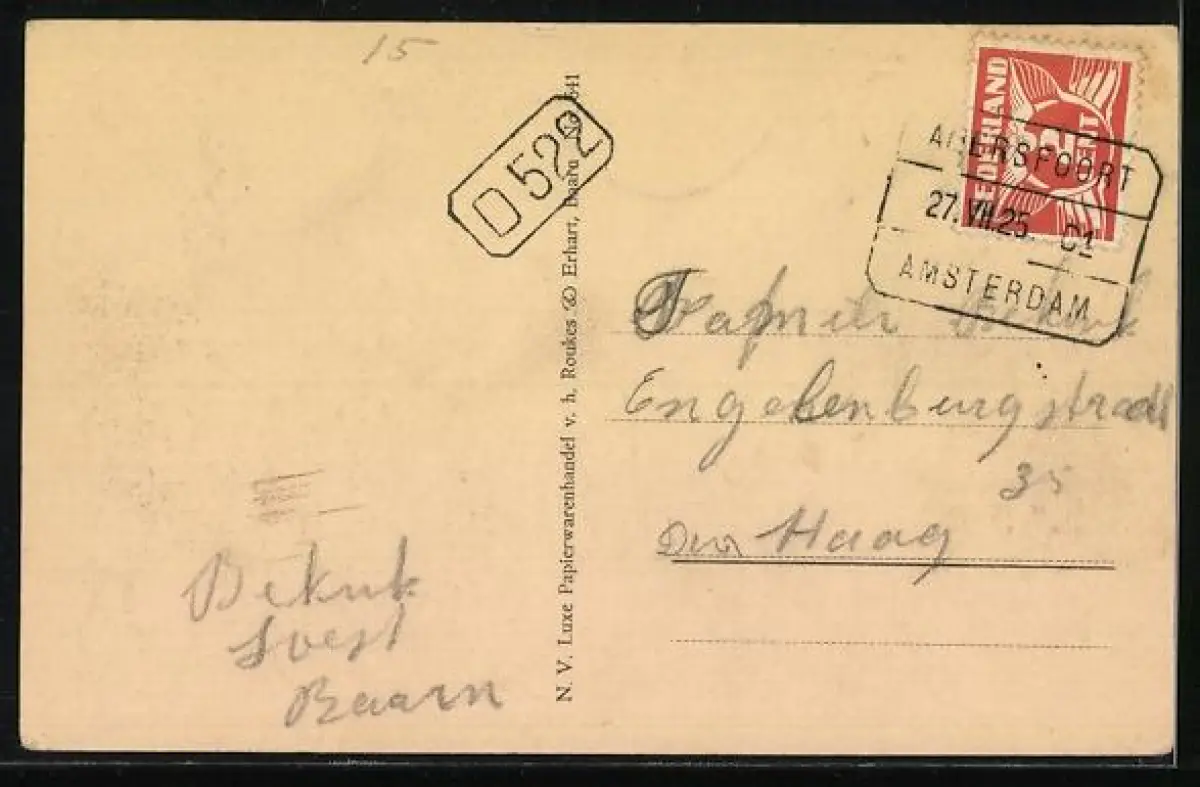 15
D 522
NEDERLAND
2
CENT
AMERSFOORT
27.VII.25. C1
AMSTERDAM
N. V. Luxe Papierwarenhandel v. h. Roukes & Erhart, Baarn
Engelenburgstraat
35
Den Haag
Soest
Baarn